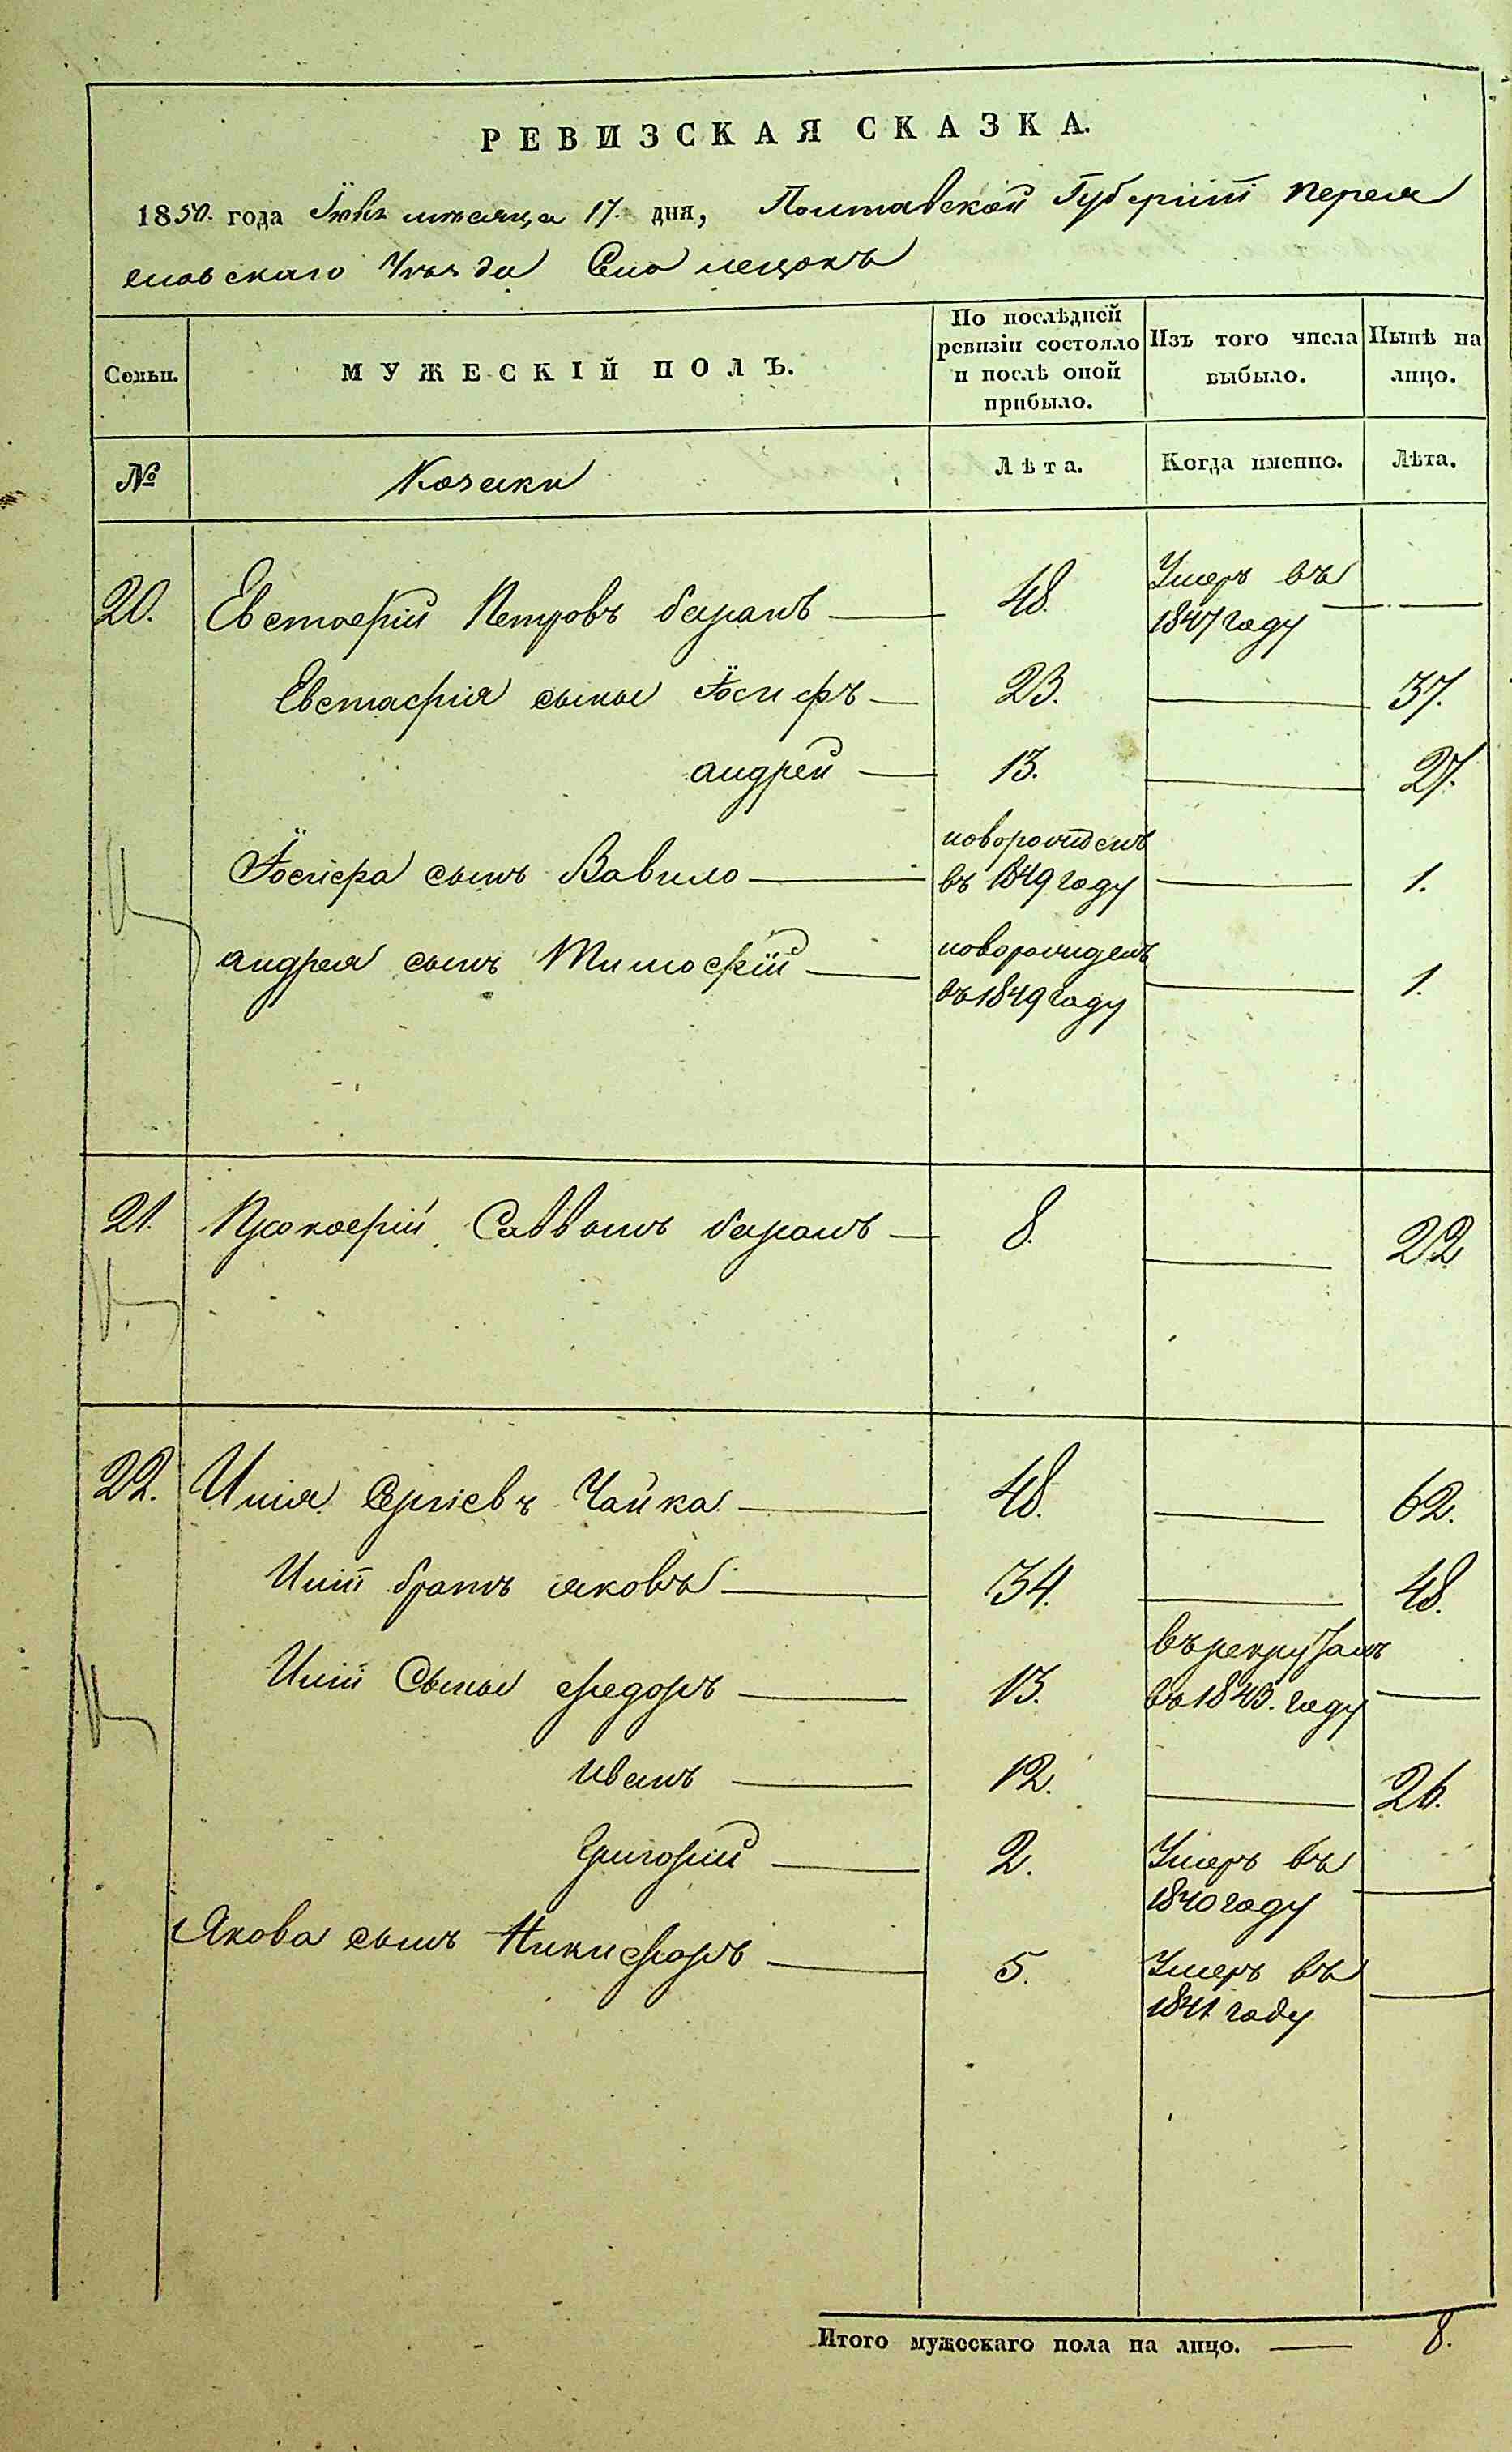 РЕВИЗСКАЯ СКАЗКА.
1850. года Іюня мѣсяца 17. дня, Полтавской Губерніи Перея
славскаго Уѣзда Села
Семьи.
МУЖЕСКІЙ ПОЛЪ.
По послѣдней
ревизіи состояло
и послѣ оной
прибыло.
Изъ того числа
выбыло.
Нынѣ на
лицо.
№
Козаки
Лѣта.
Когда именно.
Лѣта.
20. Евстафій Петровъ баранъ — 48. Умеръ въ —
1847 году
Евстафія сыны Іосифъ — 23. — 37.
андрей — 13. — 27.
новорожденъ
Іосифа сынъ Вавило — въ 1849 году — 1.
новорожденъ
андрея сынъ Тимофій — — 1.
въ 1849 году
21. Прокофій Саввинъ баранъ — 8. — 22
22. Илія Сергіевъ Чайка — 48. — 62.
Иліи братъ яковъ — 34. — 48.
въ рекрутахъ
Иліи Сыны федоръ — 13. въ 1843. году —
иванъ — 12. — 26.
Григорій — 2. Умеръ въ
1840 году —
Якова сынъ Никифоръ — 5. Умеръ въ —
1841 году
Итого мужескаго пола на лицо. — 8.